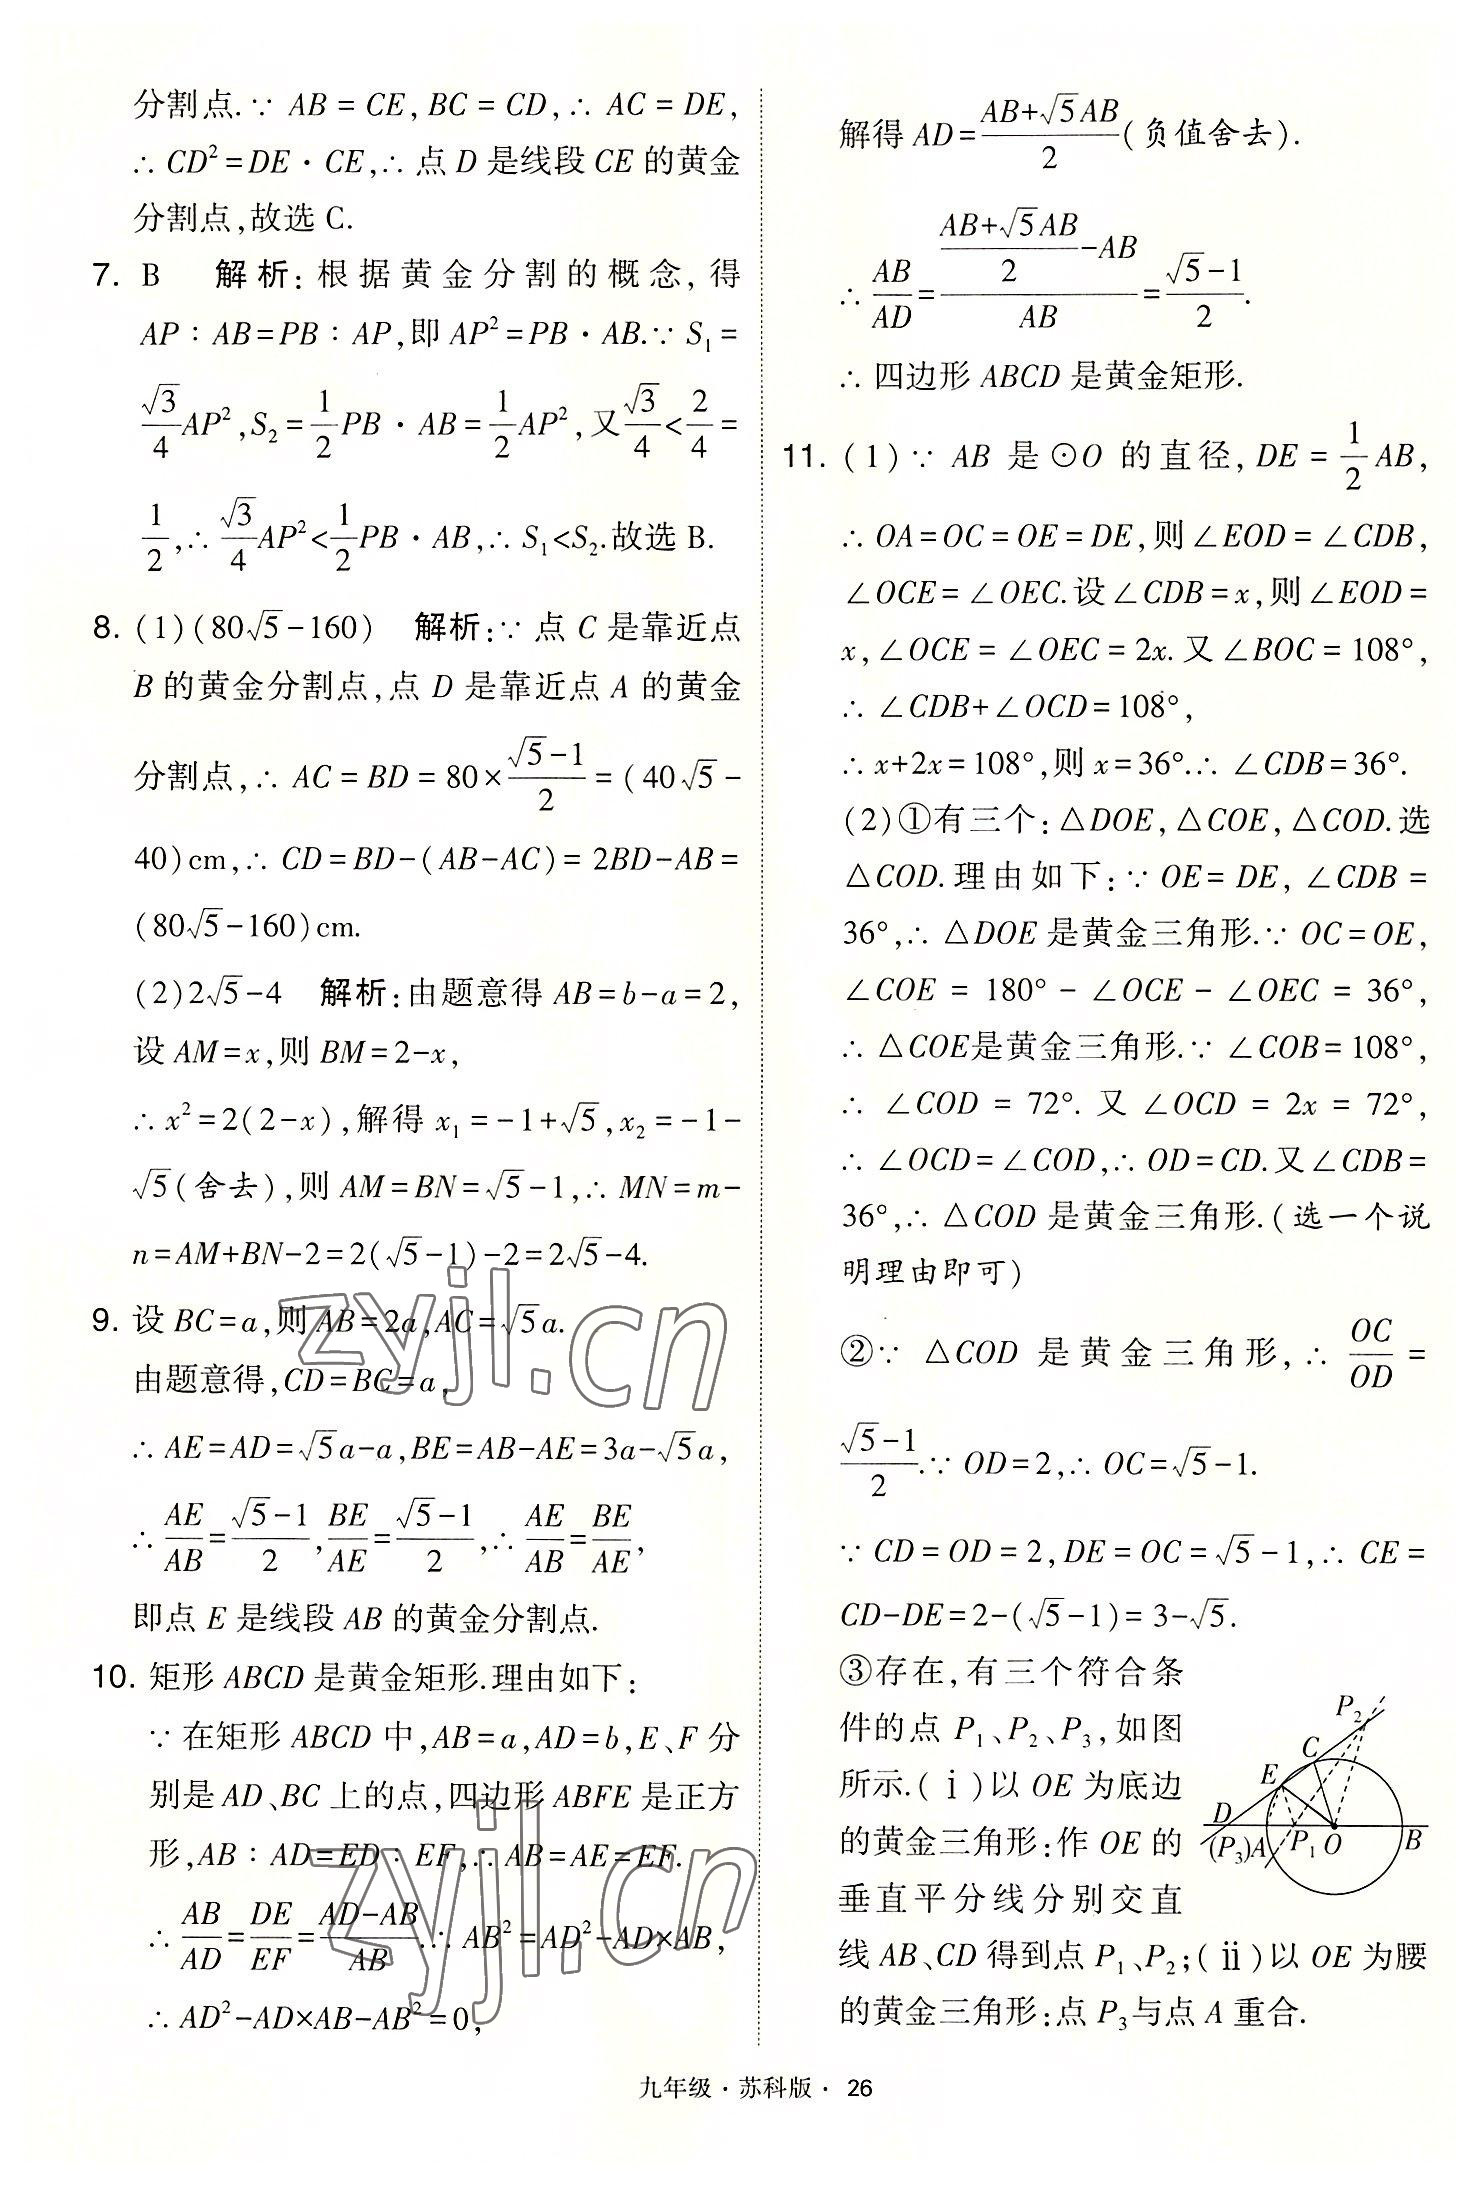 分割点.∵ AB = CE, BC = CD, ∴ AC = DE,
∴ CD²=DE·CE,∴ 点 D 是线段 CE 的黄金
分割点,故选 C.
7. B 解析:根据黄金分割的概念,得
AP∶AB=PB∶AP,即 AP²=PB·AB.∵ S₁=
√3/4 AP², S₂=1/2 PB·AB=1/2 AP²,又 √3/4<2/4=
1/2,∴ √3/4 AP²<1/2 PB·AB,∴ S₁<S₂.故选 B.
8. (1)(80√5-160) 解析:∵ 点 C 是靠近点
B 的黄金分割点,点 D 是靠近点 A 的黄金
分割点,∴ AC=BD=80×(√5-1)/2=(40√5-
40)cm,∴ CD=BD-(AB-AC)=2BD-AB=
(80√5-160)cm.
(2)2√5-4 解析:由题意得 AB=b-a=2,
设 AM=x,则 BM=2-x,
∴ x²=2(2-x),解得 x₁=-1+√5,x₂=-1-
√5(舍去),则 AM=BN=√5-1,∴ MN=m-
n=AM+BN-2=2(√5-1)-2=2√5-4.
9. 设 BC=a,则 AB=2a,AC=√5a.
由题意得,CD=BC=a,
∴ AE=AD=√5a-a,BE=AB-AE=3a-√5a,
∴ AE/AB=(√5-1)/2, BE/AE=(√5-1)/2,∴ AE/AB=BE/AE,
即点 E 是线段 AB 的黄金分割点.
10. 矩形 ABCD 是黄金矩形.理由如下:
∵ 在矩形 ABCD 中,AB=a,AD=b,E、F 分
别是 AD、BC 上的点,四边形 ABFE 是正方
形,AB∶AD=ED∶EF,∴ AB=AE=EF.
∴ AB/AD=DE/EF=(AD-AB)/AB.∴ AB²=AD²-AD×AB,
∴ AD²-AD×AB-AB²=0,
解得 AD=(AB+√5AB)/2(负值舍去).
∴ AB/AD=((AB+√5AB)/2-AB)/AB=(√5-1)/2.
∴ 四边形 ABCD 是黄金矩形.
11. (1)∵ AB 是⊙O 的直径,DE=1/2 AB,
∴ OA=OC=OE=DE,则∠EOD=∠CDB,
∠OCE=∠OEC.设∠CDB=x,则∠EOD=
x,∠OCE=∠OEC=2x.又∠BOC=108°,
∴ ∠CDB+∠OCD=108°,
∴ x+2x=108°,则 x=36°.∴ ∠CDB=36°.
(2)①有三个:△DOE,△COE,△COD.选
△COD.理由如下:∵ OE=DE,∠CDB=
36°,∴ △DOE 是黄金三角形.∵ OC=OE,
∠COE=180°-∠OCE-∠OEC=36°,
∴ △COE是黄金三角形.∵ ∠COB=108°,
∴ ∠COD=72°.又∠OCD=2x=72°,
∴ ∠OCD=∠COD,∴ OD=CD.又∠CDB=
36°,∴ △COD 是黄金三角形.(选一个说
明理由即可)
②∵ △COD 是黄金三角形,∴ OC/OD=
(√5-1)/2.∵ OD=2,∴ OC=√5-1.
∵ CD=OD=2,DE=OC=√5-1,∴ CE=
CD-DE=2-(√5-1)=3-√5.
③存在,有三个符合条
件的点 P₁、P₂、P₃,如图
所示.(ⅰ)以 OE 为底边
的黄金三角形:作 OE 的
垂直平分线分别交直
线 AB、CD 得到点 P₁、P₂;(ⅱ)以 OE 为腰
的黄金三角形:点 P₃与点 A 重合.
P₂
C
E
D
(P₃)A P₁ O B
zyjl.cn
zyjl.cn
九年级·苏科版· 26